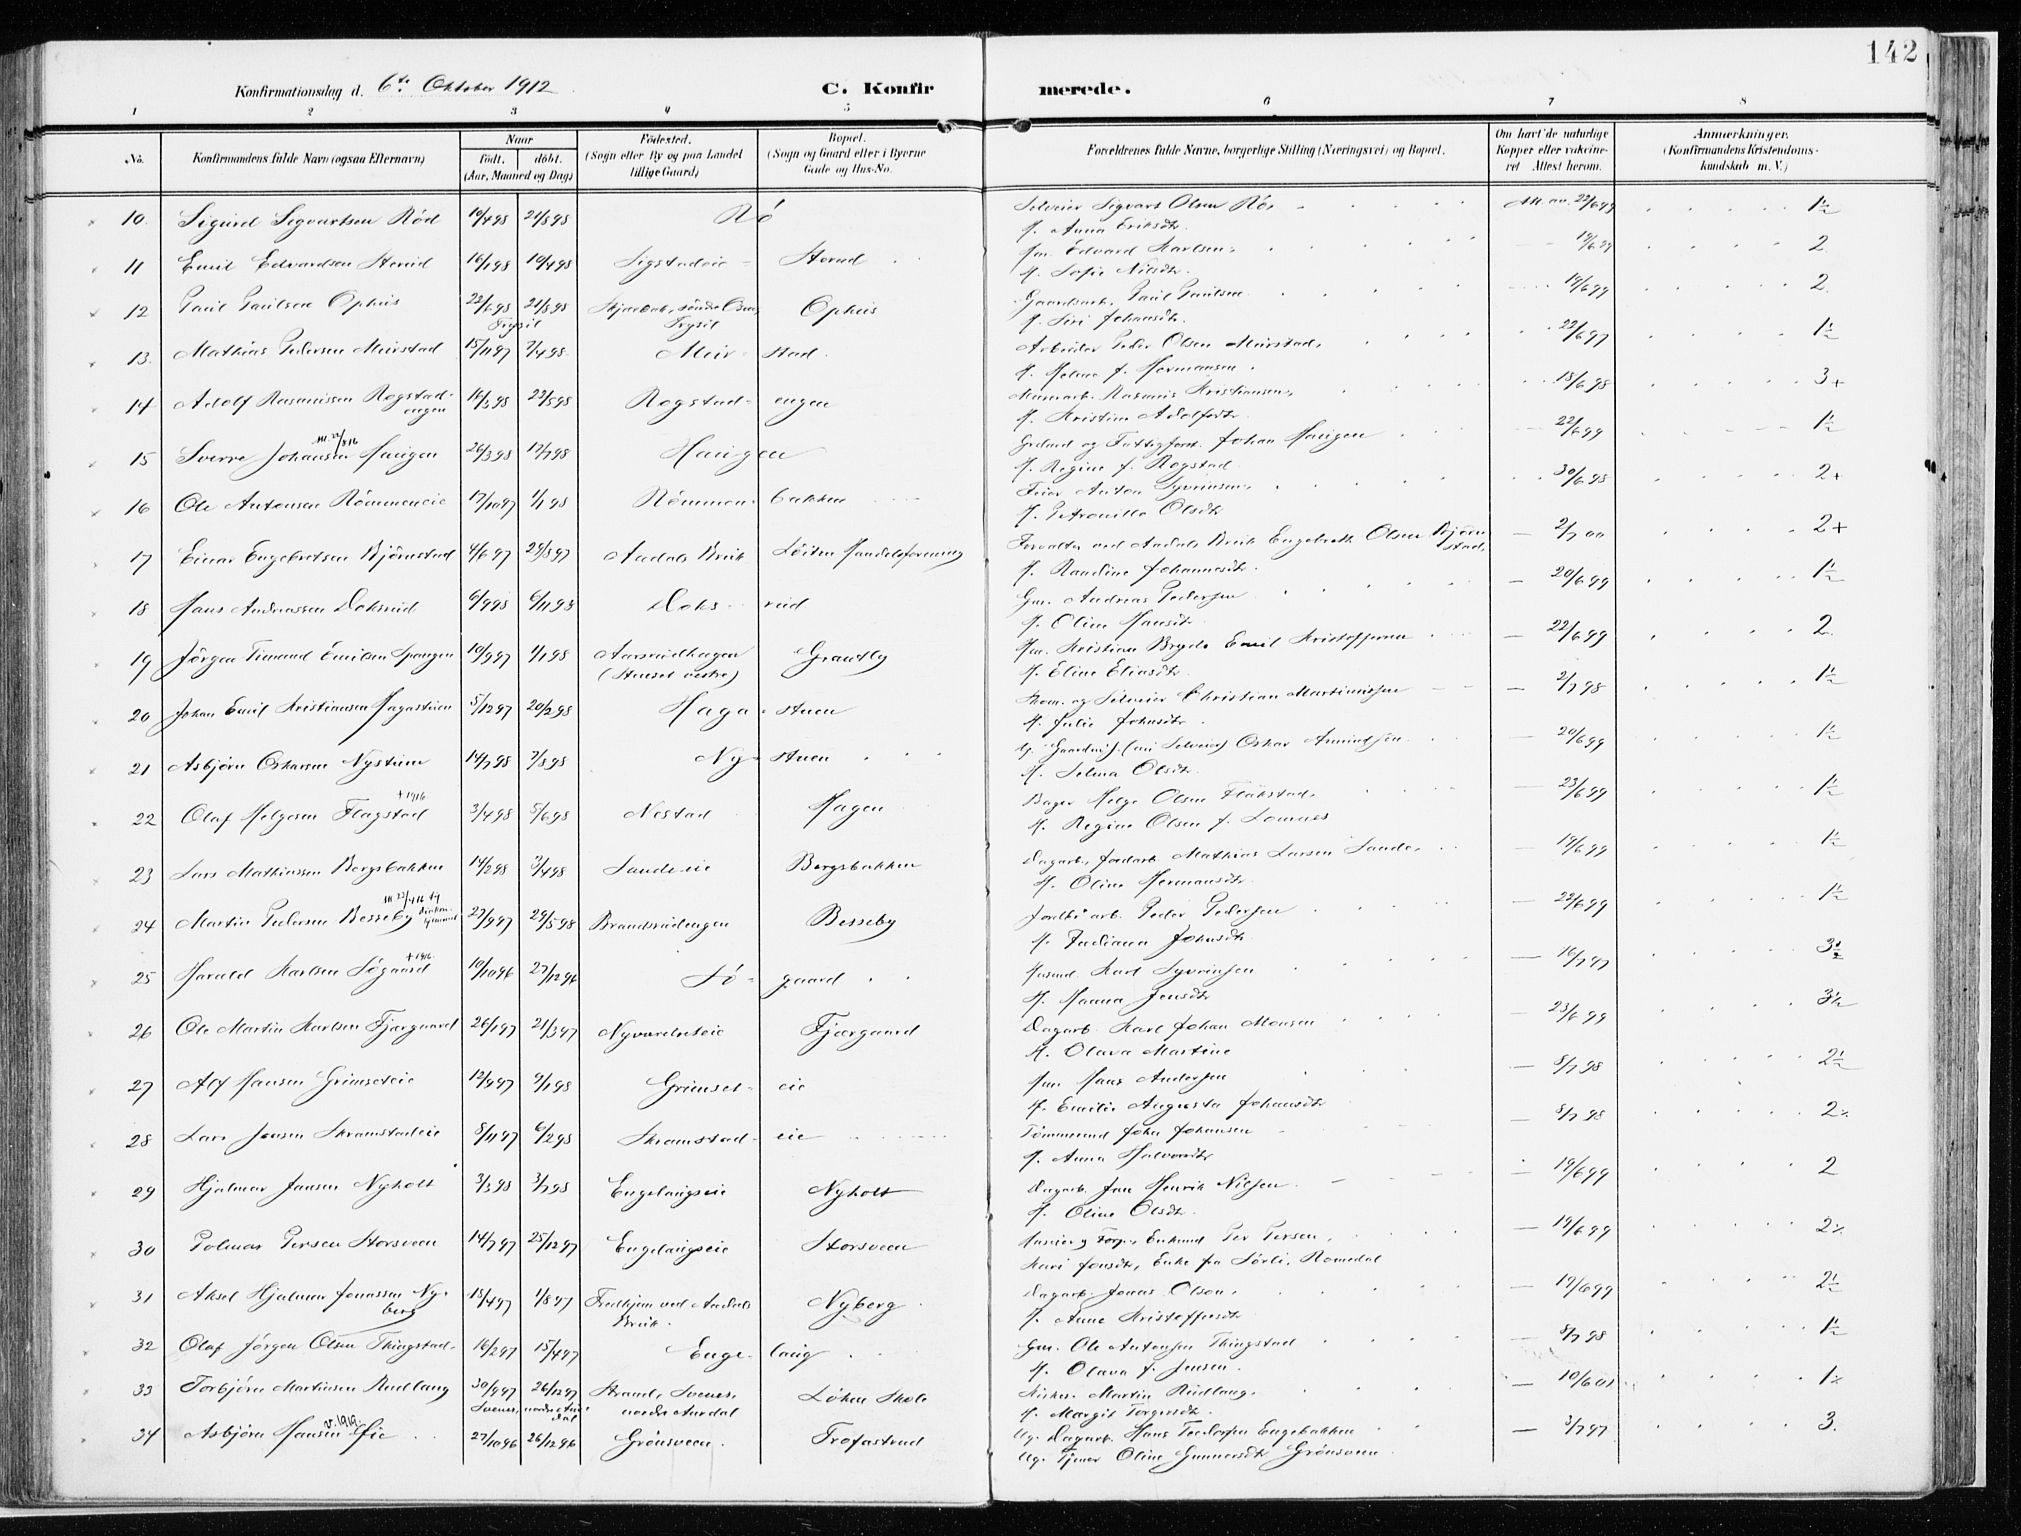 142
Konfirmationsdag d. 6te Oktober 1912
C. Konfirmerede.
1 2 3 4 5 6 7 8
No. Konfirmandens fulde Navn (ogsaa Efternavn) Naar födt. döbt. (Aar, Maaned og Dag) Födested. (Sogn eller By og paa Landet tillige Gaard) Bopæl. (Sogn og Gaard eller i Byerne Gade og Hus-No. Forældrenes fulde Navne, borgerlige Stilling (Næringsvei) og Bopæl. Om havt de naturlige Kopper eller vakcineret Attest herom. Anmærkninger. (Konfirmandens Kristendomskundskab m. V.)
10. Sigurd Sigvartsen Röd 10/4 98 21/8 98 Rö Selveier Sigvart Olsen Rö, 22/6 99 1½
H. Anna Eriksdtr.
11 Emil Edvardsen Storud 16/1 98 10/4 98 Sigstadeie Storud Hm. Edvard Karlsen, 19/6 99 2
H. Sofie Nilsdtr.
12 Paul Paulsen Ophus 22/6 98 21/8 98 Trysil Ophus Gaardsarb. Paul Paulsen 19/6 99 2.
H. Siri Johansdtr.
13. Mathias Pedersen Meirstad 15/11 97 7/4 98 Meirstad Arbeider Peder Olsen Meirstad, 22/6 97 1½
H. Helene f. Hermansen.
14 Adolf Rasmussen Rogstadengen 16/3 98 23/5 98 Rogstadengen Murarb. Rasmus Kristiansen, 18/6 98 3+
H. Kristine Adolfsdtr.
15 Sverre Johansen Haugen 26/3 98 17/7 98 Haugen Johan Haugen 22/6 99 1½
H. Regine f. Rogstad.
16 Ole Antonsen Römmeneie 17/10 97 1/1 98 Römmenbakken Feier Anton Syversen, 30/6 98 2+
H. Petronille Olsdtr
17 Einar Engebretsen Bjørnstad 4/6 97 29/8 97 Aadals Bruk Löiten Handelsforening Forvalter ved Aadals Bruk Engebreth Olsen Bjørnstad. 2/7 00 2+
H. Randine Johannesdtr.
18 Hans Andreassen Doksrud 6/9 98 6/11 98 Doksrud Gm. Andreas Pedersen 20/6 99 1½
H. Oline Hansdtr.
19 Jörgen Timand Emilsen Spangen 10/9 97 1/1 98 Aarsrudhagen (Stenset vestre) Grantby Hm. Kristian Bryde Emil Kristoffersen 22/6 99 2.
H. Eline Eliasdtr.
20 Johan Emil Kristiansen Hagastuen 5/12 97 20/2 98 Hagastuen Skom. og Selveier Christian Martiniusen 2/7 98 1½
H. Julie Johnsdtr.
21 Asbjørn Oskarsen Nystuen 14/7 98 7/8 98 Nystuen (nu Selveier) Oskar Amundsen 20/6 99 1½
H. Selma Olsdtr.
22 Olaf Helgesen Flagstad +1916 3/4 98 5/6 98 Nestad Hagen Bager Helge Olsen Flakstad, 23/6 99 1½
H. Regine Olsen f. Lomnes
23 Lars Mathiassen Bergsbakken 14/2 98 3/4 98 Sandeeie Bergsbakken Dagarb., Jordarb. Mathias Larsen Sande, 19/6 99 1½
H. Oline Hermansdtr.
24 Martin Pedersen Besseby 27/9 97 29/5 98 Brandsrudengen Besseby Peder Pedersen 22/6 99 1½
H. Juliana Johnsdtr.
25 Harald Karlsen Søgaard +1916. 10/10 96 27/12 96 Søgaard Husmd. Karl Syversen 16/7 97 3½
H. Maana Jensdtr
26 Ole Martin Karlsen Fjærgaard 26/1 97 21/3 97 Nyvardseteie Fjærgaard Dagarb. Karl Johan Monsen 23/6 99 3½
H. Olava Martine
27 Alf Hansen Grimseteie 12/9 97 9/1 98 Grimseteie Hm. Hans Andersen 8/7 98 2½
H. Emilie Augusta Johansdtr
28 Lars Jensen Skramstadeie 8/11 97 6/2 98 Skramstadeie Tömmermd. John Johansen 8/7 98 2½
H. Anna Halvorsdtr
29 Hjalmar Jansen Nyholt 3/3 98 3/7 98 Engelaugseie Nyholt Dagarb. Jan Henrik Nielsen. 19/6 99 2
H. Oline Olsdtr.
30 Polmar Persen Storsveen 14/7 97 25/12 97 Engelaugseie Storsveen Enkemd Per Persen, 19/6 99 2½
Kari Jonsdtr, Enke fra Sörli, Romedal
31 Aksel Hjalmar Jonassen Nyberg 18/4 97 1/8 97 Fredhjem ved Aadals Bruk. Nyberg Dagarb. Jonas Olsen, 19/6 99 2½
H. Anne Kristoffersdtr.
32 Olaf Jörgen Olsen Thingstad. 16/2 97 15/4 97 Engelaug Gm. Ole Antonsen Thingstad 8/7 98 1½
H. Olava f. Jensen.
33 Torbjörn Martinsen Rudlang 30/9 97 26/12 97 Strand, Svenes, nordre Aurdal Löken Skole Kirkes. Martin Rudlang, 10/6 01 1½
H. Margit Torgersdtr.
34 Asbjørn Hansen Lie v. 1919. 27/10 96 26/12 96 Grønsveen. Trofastrud Ug. Dagarb. Hans Pedersen Engebakken 3/7 97 3.
Ug. Tjener Oline Gunnersdtr Grönsveen